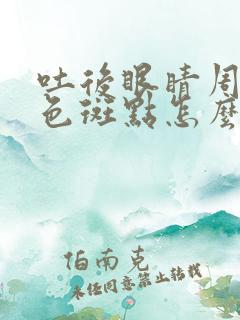 吐後眼睛周
色斑點怎麼
伯南克
未經同意禁止轉載